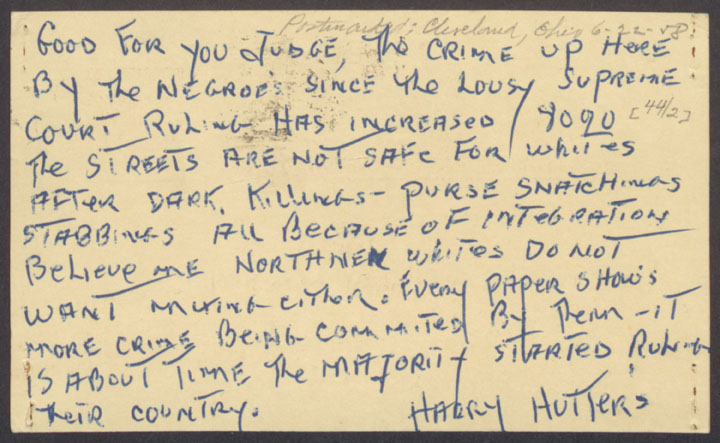 Postmarked: Cleveland, Ohio 6-22-58
GOOD FOR YOU JUDGE, The CRIME UP HERE
BY The NEGROE'S SINCE The LOUSY SUPREME
COURT RULING HAS INCREASED 90%
[44/2]
The STREETS ARE NOT SAFE FOR WhiTES
AFTER DARK. KILLINGS - PURSE SNATCHINGS
STABBINGS All BECAUSE OF INTEGRATION
Believe ME NORTHNEN WhiTES DO NOT
WANT MIXING EITHER. EVERY PAPER SHOWS
MORE CRIME BEING COMMITED BY Them - IT
IS ABOUT TIME The MAJORITY STARTED RULING
Their COUNTRY.
HARRY HUTTERS